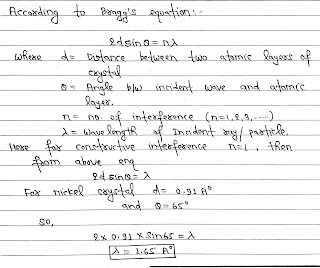 According to Bragg's equation:-
2dsinθ = nλ
where d= Distance between two atomic layers of
crystal
θ = Angle b/w incident wave and atomic
layer.
n = no. of interference (n=1,2,3,----)
λ = wavelength of Incident ray/particle.
Here for constructive interference n=1, then
from above eqn
2d sinθ = λ
For nickel crystal d= 0.91 A°
and θ = 65°
So,
2x 0.91 x Sin65 = λ
λ = 1.65 A°